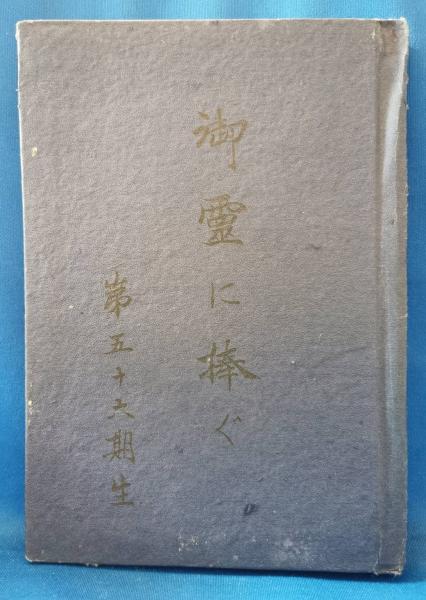 御霊に捧ぐ
第五十六期生